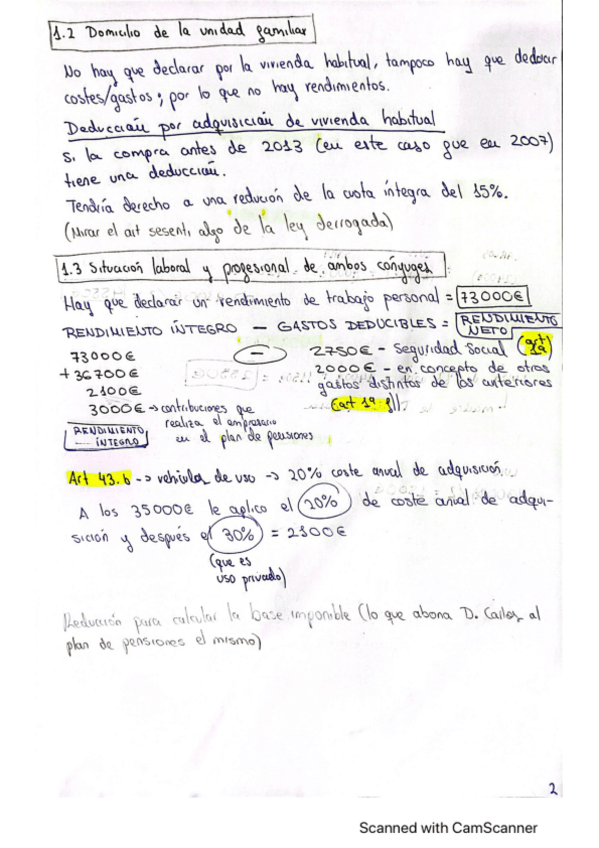 1.2 Domicilio de la unidad familiar
No hay que declarar por la vivienda habitual, tampoco hay que deducir
costes/gastos; por lo que no hay rendimientos.
Deducción por adquisición de vivienda habitual
Si la compra antes de 2013 (en este caso fue en 2007)
tiene una deducción.
Tendría derecho a una redución de la cuota íntegra del 15%.
(Mirar el art sesenti algo de la ley derrogada)
1.3 Situación laboral y profesional de ambos cónyuges
Hay que declarar un rendimiento de trabajo personal = 73000€
RENDIMIENTO ÍNTEGRO — GASTOS DEDUCIBLES = RENDIMIENTO NETO
73000€ — 2750€ - Seguridad Social (art
+ 36700€ 2000€ - en concepto de otros
2100€ gastos distintos de los anteriores
3000€ → contribuciones que (art 19 f)
realiza el empresario
en el plan de pensiones
RENDIMIENTO
ÍNTEGRO
Art 43.b -> vehículos de uso -> 20% coste anual de adquisición
A los 35000€ le aplico el 20% de coste anual de adqui-
sición y después el 30% = 2100€
(que es
uso privado)
Reducción para calcular la base imponible (lo que abona D. Carlos al
plan de pensiones el mismo)
2
Scanned with CamScanner